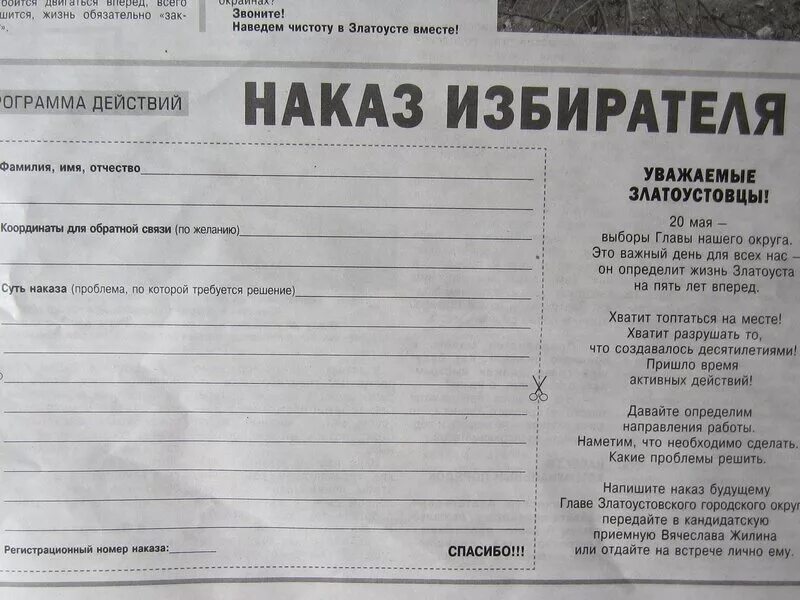 вперед, всего
жизнь обязательно «зак-
Звоните!
Наведем чистоту в Златоусте вместе!
ПРОГРАММА ДЕЙСТВИЙ
НАКАЗ ИЗБИРАТЕЛЯ
Фамилия, имя, отчество
Координаты для обратной связи (по желанию)
Суть наказа (проблема, по которой требуется решение)
Регистрационный номер наказа:
СПАСИБО!!!
УВАЖАЕМЫЕ
ЗЛАТОУСТОВЦЫ!
20 мая –
выборы Главы нашего округа.
Это важный день для всех нас –
он определит жизнь Златоуста
на пять лет вперед.
Хватит топтаться на месте!
Хватит разрушать то,
что создавалось десятилетиями!
Пришло время
активных действий!
Давайте определим
направления работы.
Наметим, что необходимо сделать.
Какие проблемы решить.
Напишите наказ будущему
Главе Златоустовского городского округ
передайте в кандидатскую
приемную Вячеслава Жилина
или отдайте на встрече лично ему.